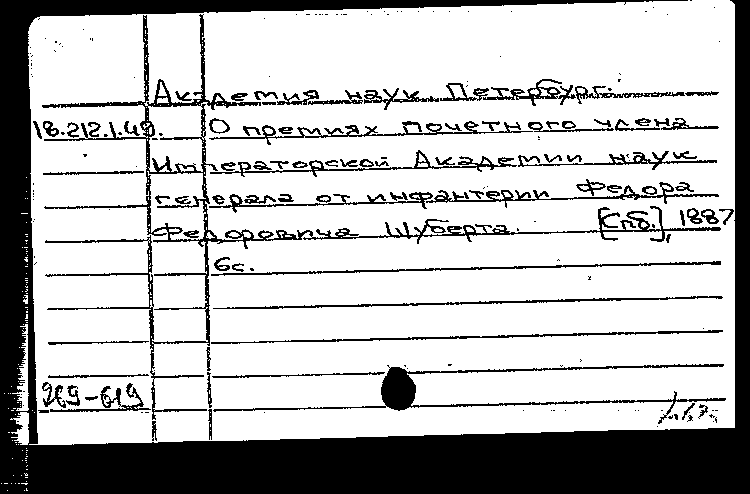 Академия наук. Петербург.
18.212.1.49. О премиях почетного члена
Императорской Академии наук
генерала от инфантерии Федора
Федоровича Шуберта. [Спб.], 1887
6с.
269-619